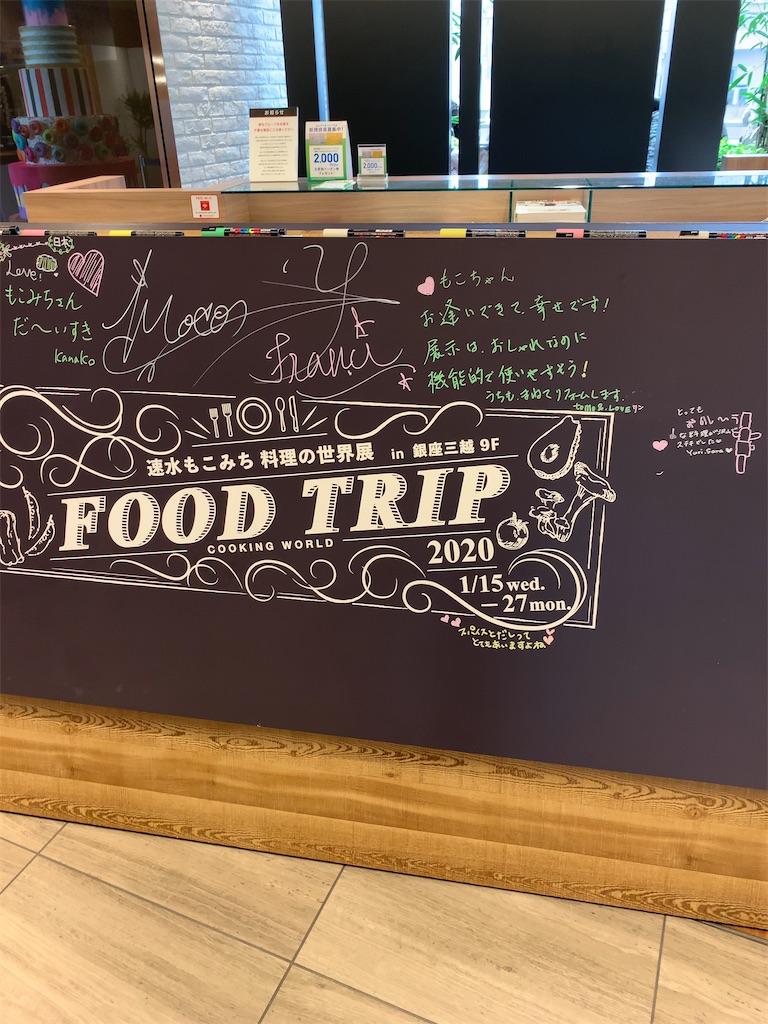 お知らせ
2,000
2,000
日本
Love!
もこみちさん
だ〜いすき
Kanako
Moco
Franci
もこちゃん
お逢いできて、幸せです!
展示は、おしゃれなのに
機能的で使いやすそう!
うちも、まねてリフォームします.
速水もこみち 料理の世界展 in 銀座三越 9F
FOOD TRIP
COOKING WORLD
2020
1/15 wed.
— 27 mon.
とっても
Yuri. Sara
スパイスとだしって
とてもあいますよね